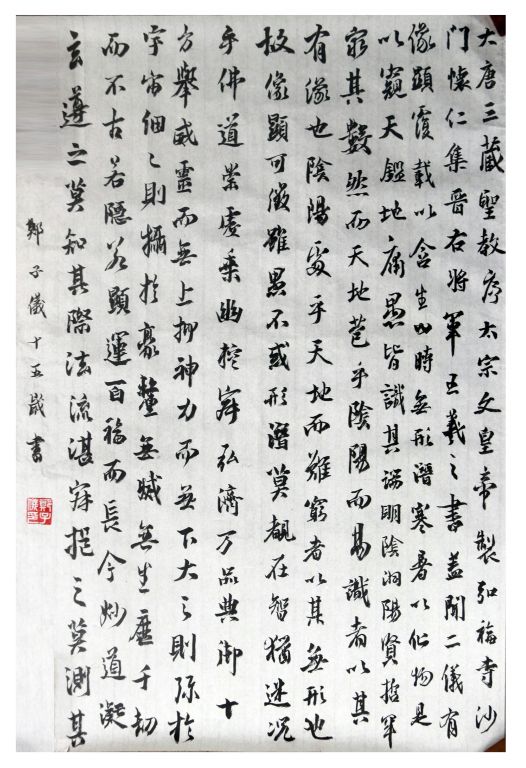 大唐三藏聖教序太宗文皇帝製弘福寺沙
門懷仁集晉右將軍王羲之書蓋聞二儀有
像顯覆載以含生四時無形潛寒暑以化物是
以窺天鑑地庸愚皆識其端明陰洞陽賢哲罕
窮其數然而天地苞乎陰陽而易識者以其
有像也陰陽處乎天地而難窮者以其無形也
故像顯可徵雖愚不惑形潛莫覩在智猶迷況
乎佛道崇虛乘幽控寂弘濟万品典御十
方舉威靈而無上抑神力而無下大之則彌於
宇宙細之則攝於豪釐無滅無生歷千劫
而不古若隱若顯運百福而長今妙道凝
玄遵之莫知其際法流湛寂挹之莫測其
鄭子儀十五歲書